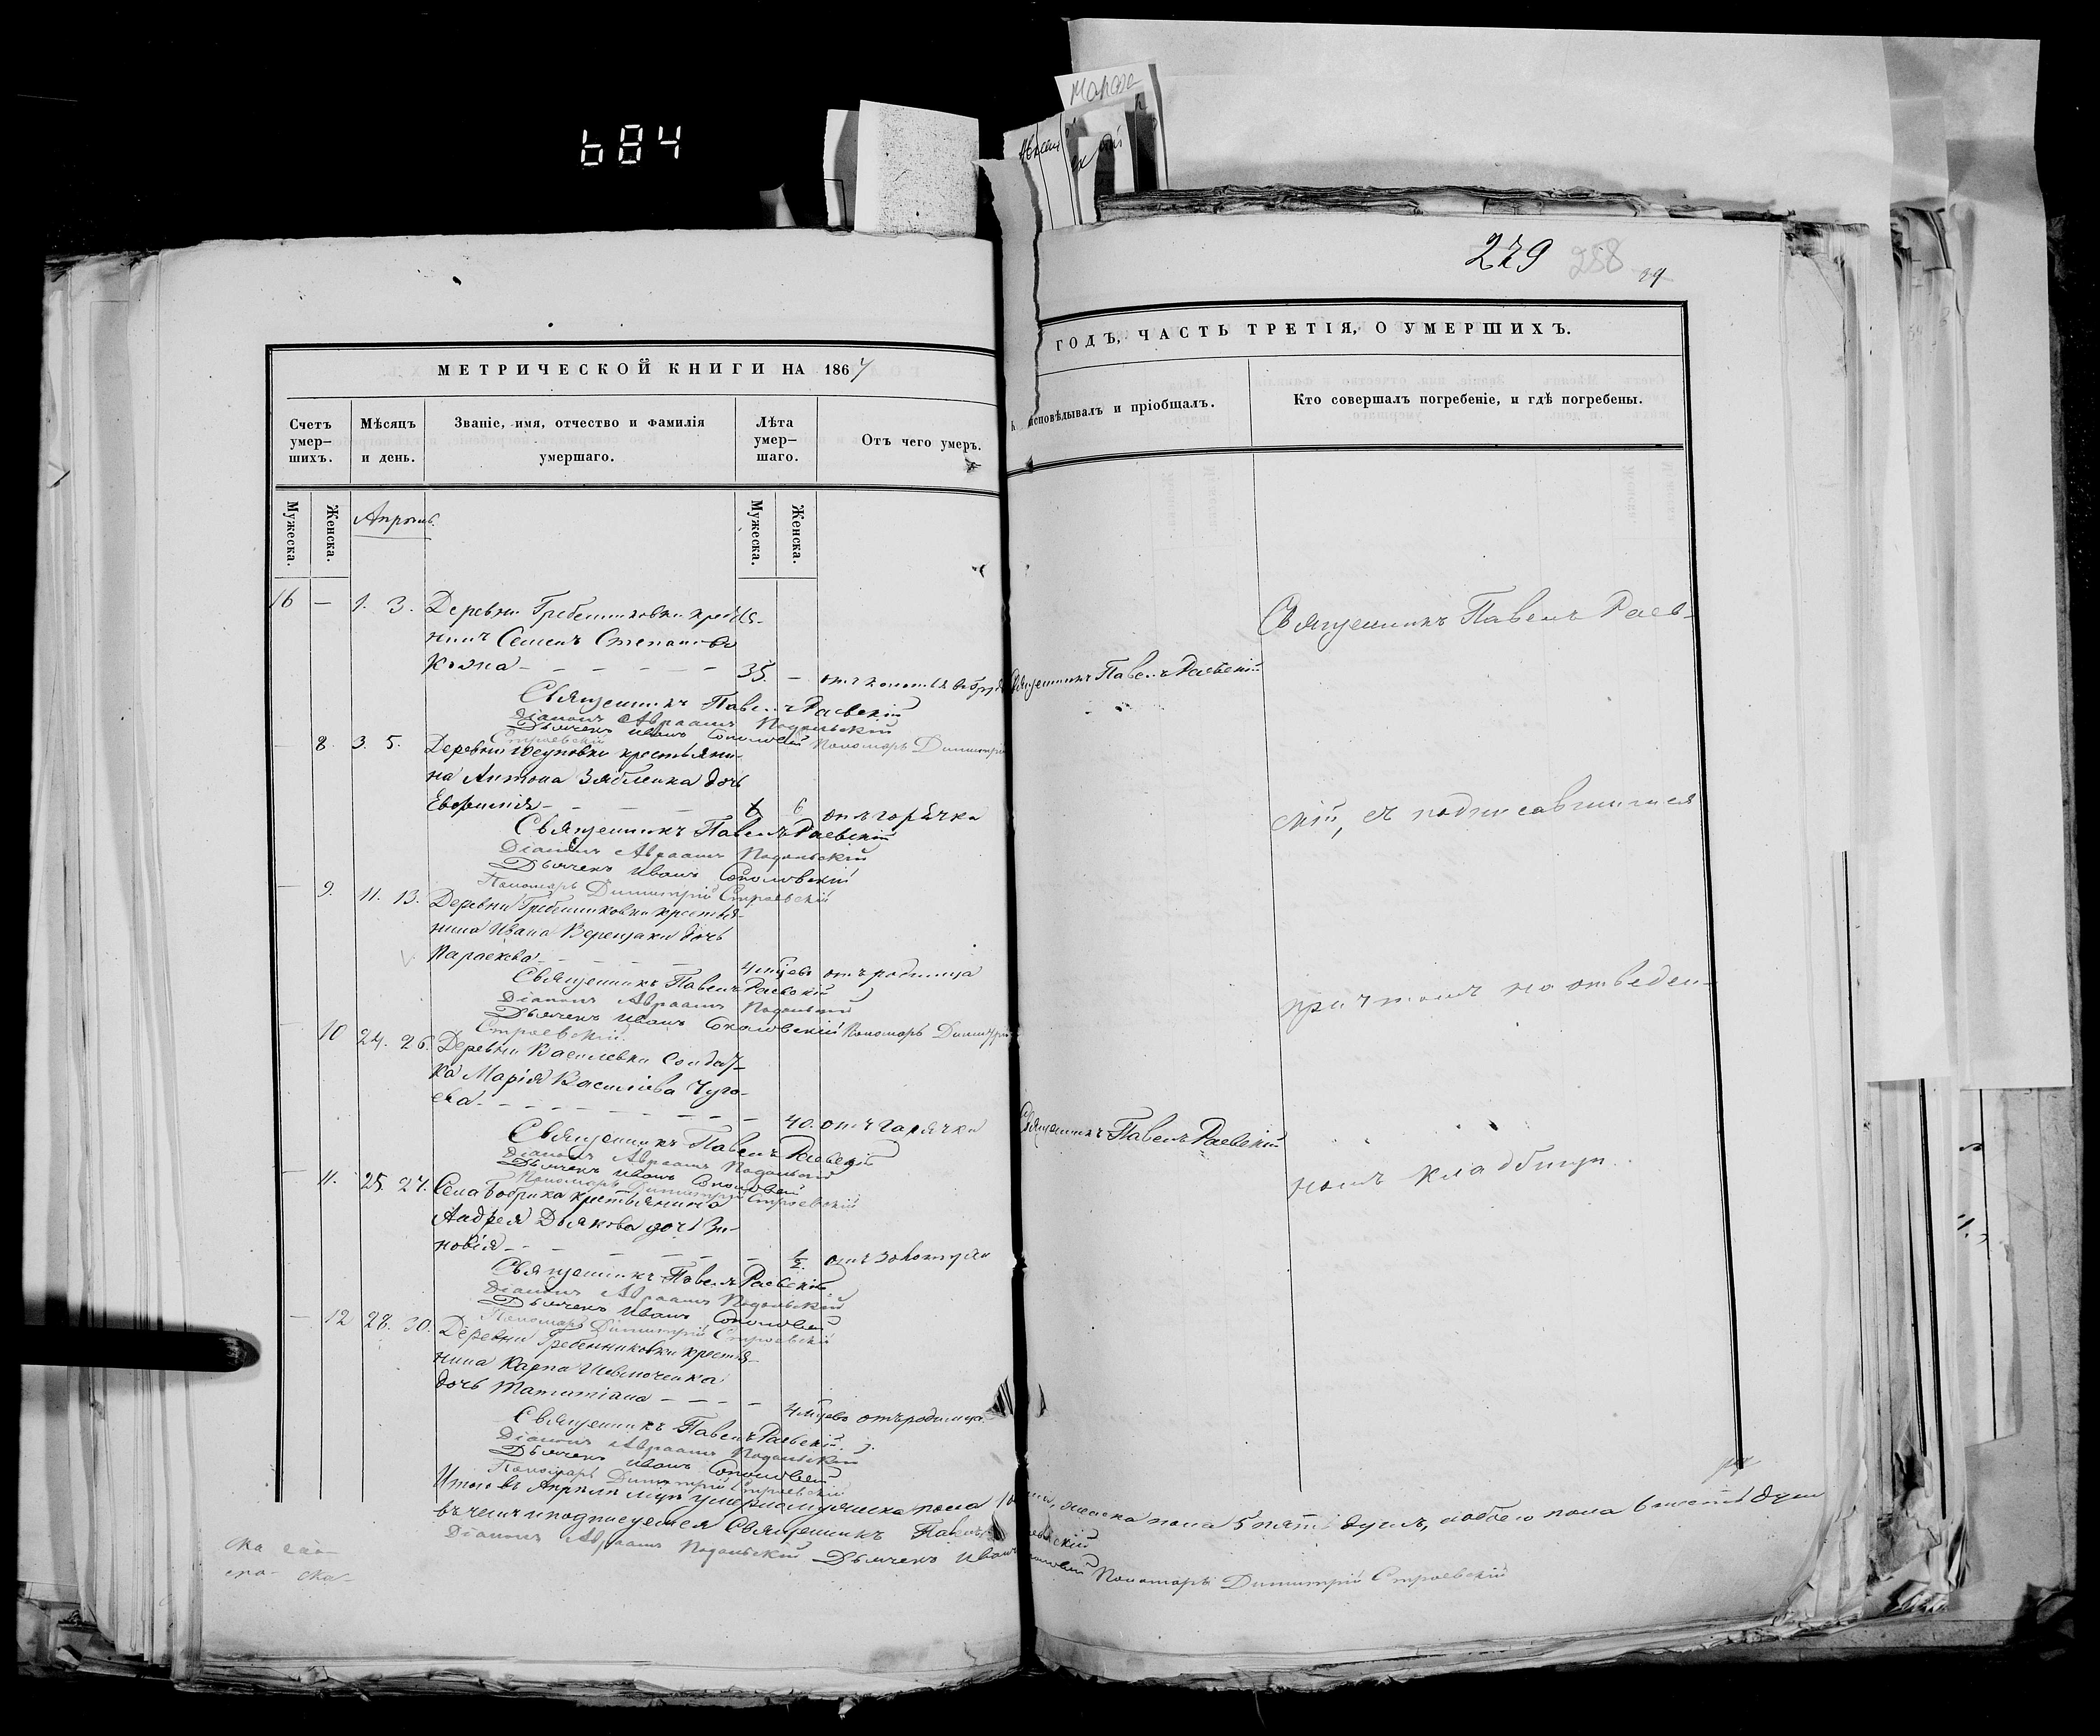 684
279 258
МЕТРИЧЕСКОЙ КНИГИ НА 1867
ГОДЪ, ЧАСТЬ ТРЕТІЯ, О УМЕРШИХЪ.
Счетъ умер-шихъ.
Мѣсяцъ и день.
Званіе, имя, отчество и фамилія умершаго.
Лѣта умер-шаго.
Отъ чего умеръ.
исповѣдывалъ и пріобщалъ.
Кто совершалъ погребеніе, и гдѣ погребены.
Мужеска.
Женска.
Апрѣль.
Мужеска.
Женска.
16 — 1. 3. Деревни Гребенниковки крестья-
нинъ Семенъ Степановъ
35. —
Священникъ Павелъ Раевскій
Священникъ Павелъ Раевскій
Діаконъ Авраамъ Подольскій
Дьячекъ Иванъ Соколовскій Пономарь Димитрій
Строевскій
— 8. 3. 5. Деревни Юсуповки крестьяни-
на Антона Зябленка дочь
Евфимія — 6 отъ горячки
Священникъ Павелъ Раевскій
Діаконъ Авраамъ Подольскій
Дьячекъ Иванъ Соколовскій
Пономарь Димитрій Строевскій
— 9. 11. 13. Деревни Гребенниковки крестья-
нина Ивана Верещаки дочь
Параскева — 4 мцевъ отъ родимца
Священникъ Павелъ Раевскій
Діаконъ Авраамъ Подольскій
Дьячекъ Иванъ Соколовскій Пономарь Димитрій
Строевскій.
— 10 24. 26. Деревни Василевки солдат-
ка Марія Васильева Чуго-
ева — 40. отъ горячки
Священникъ Павелъ Раевскій
Священникъ Павелъ Раевскій
Діаконъ Авраамъ Подольскій
Дьячекъ Иванъ Соколовскій
Пономарь Димитрій Строевскій
— 11. 25. 27. Села Бобрика крестьянина
Андрея Дьякова дочь Зи-
новія — 1/2 отъ золотухи
Священникъ Павелъ Раевскій
Діаконъ Авраамъ Подольскій
Дьячекъ Иванъ Соколовскій
Пономарь Димитрій Строевскій
— 12 28. 30. Деревни Гребенниковки крестья-
нина Карпа Шевлюченка
дочь Татіана — 4 мцевъ отъ родимца
Священникъ Павелъ Раевскій
Діаконъ Авраамъ Подольскій
Дьячекъ Иванъ Соколовскій
Пономарь Димитрій Строевскій
Итого въ Апрѣлѣ мцѣ умерло мужеска пола 1 женска пола 5 пять душъ, обоего пола 6 шесть душъ
въ чемъ и подписуемся Священникъ Павелъ Раевскій
Діаконъ Авраамъ Подольскій Дьячекъ Иванъ Соколовскій Пономарь Димитрій Строевскій
Священникъ Павелъ Раев-
скій, съ подписавшимся
причтомъ на отведен-
номъ кладбищѣ.